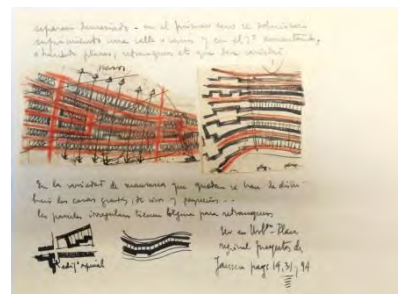 separan demasiado - en el primer caso se
suprimiendo una calle o varios y en el 2º aumentando,
o haciendo plazas, retranqueos etc que dan variedad
En la variedad de manzanas que quedan se han de distri
buir las casas grandes, de vivos y pequeños - -
las parcelas irregulares tienen lógica para retranqueos
Ver en Urbmo Plan
regional proyectos de
Jansen pags 19, 31, 94